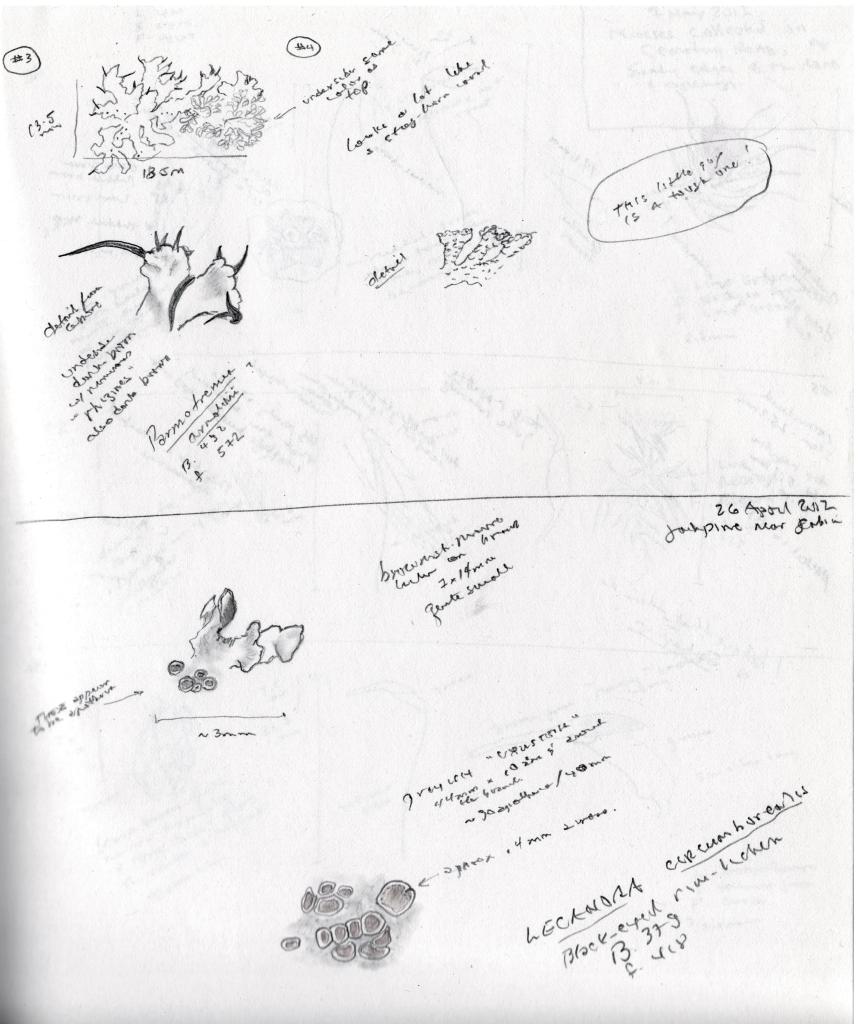 #3
#4
underside same
color as
top
Looks a lot like
a stag-horn coral
THIS little guy
is a tough one!
13.5
mm
18.5m
detail from
underside
dark brown
w/ numerous
"rhizines"
also dark brown
detail
Parmotrema ?
arnoldii
B. 492
f 572
26 April 2012
Jackpine near
brownish-mauve
7x14mm
quite small
These appear
to be apothecia
~3mm
greyish "crustose"
44mm x
the branch
~30 apothecia / 40mm
approx .4mm
LECANORA circumborealis
Black-eyed rim-lichen
B. 379
f. 418